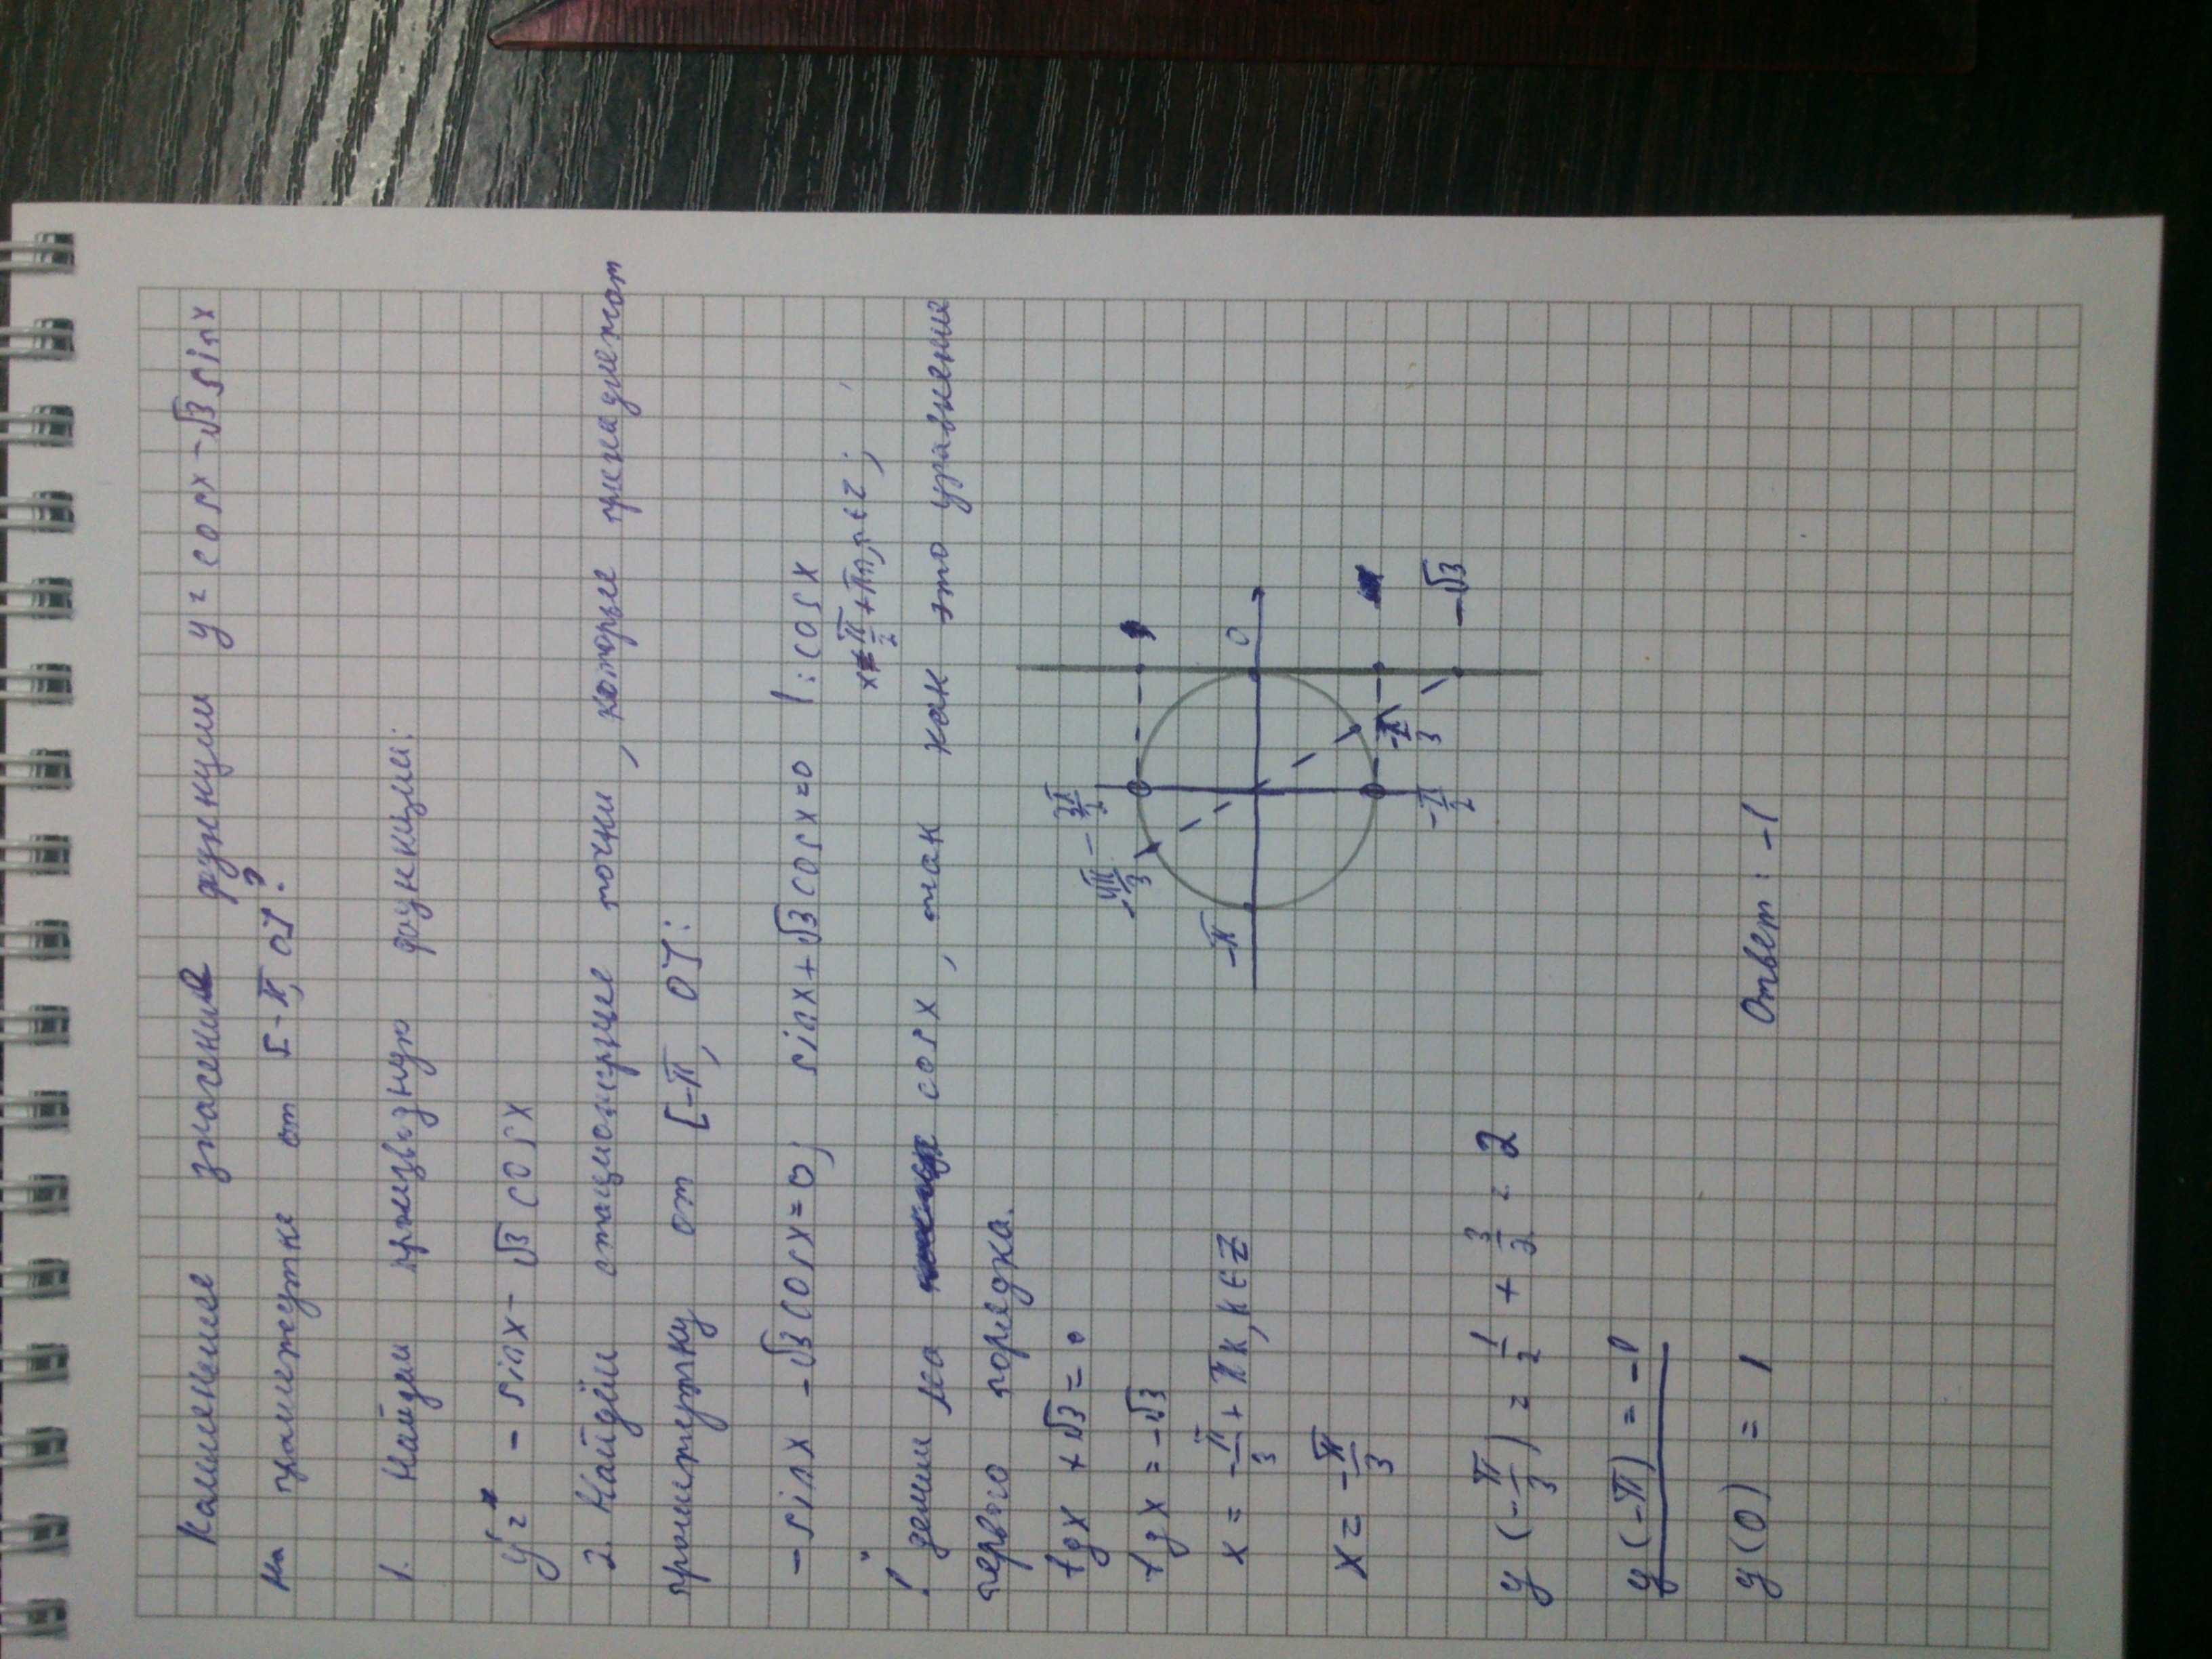 Наименьшее значение функции y = cosx - √3 sinx
на промежутке от [-π, 0]?
1. Найдём производную функции:
y' = - sinx - √3 cosx
2. Найдём стационарные точки, которые принадлежат
промежутку от [-π, 0]:
- sinx - √3 cosx = 0; sinx + √3 cosx = 0 | : cosx
x ≠ π/2 + πn, n ∈ z;
! делим на cosx, так как это уравнение
первого порядка.
tgx + √3 = 0
tgx = -√3
x = -π/3 + πk, k ∈ Z
x = -π/3
-4π/3
-3π/2
-π
0
-π/3
-π/2
-√3
y(-π/3) = 1/2 + 3/2 = 2
y(-π) = -1
y(0) = 1
Ответ: -1